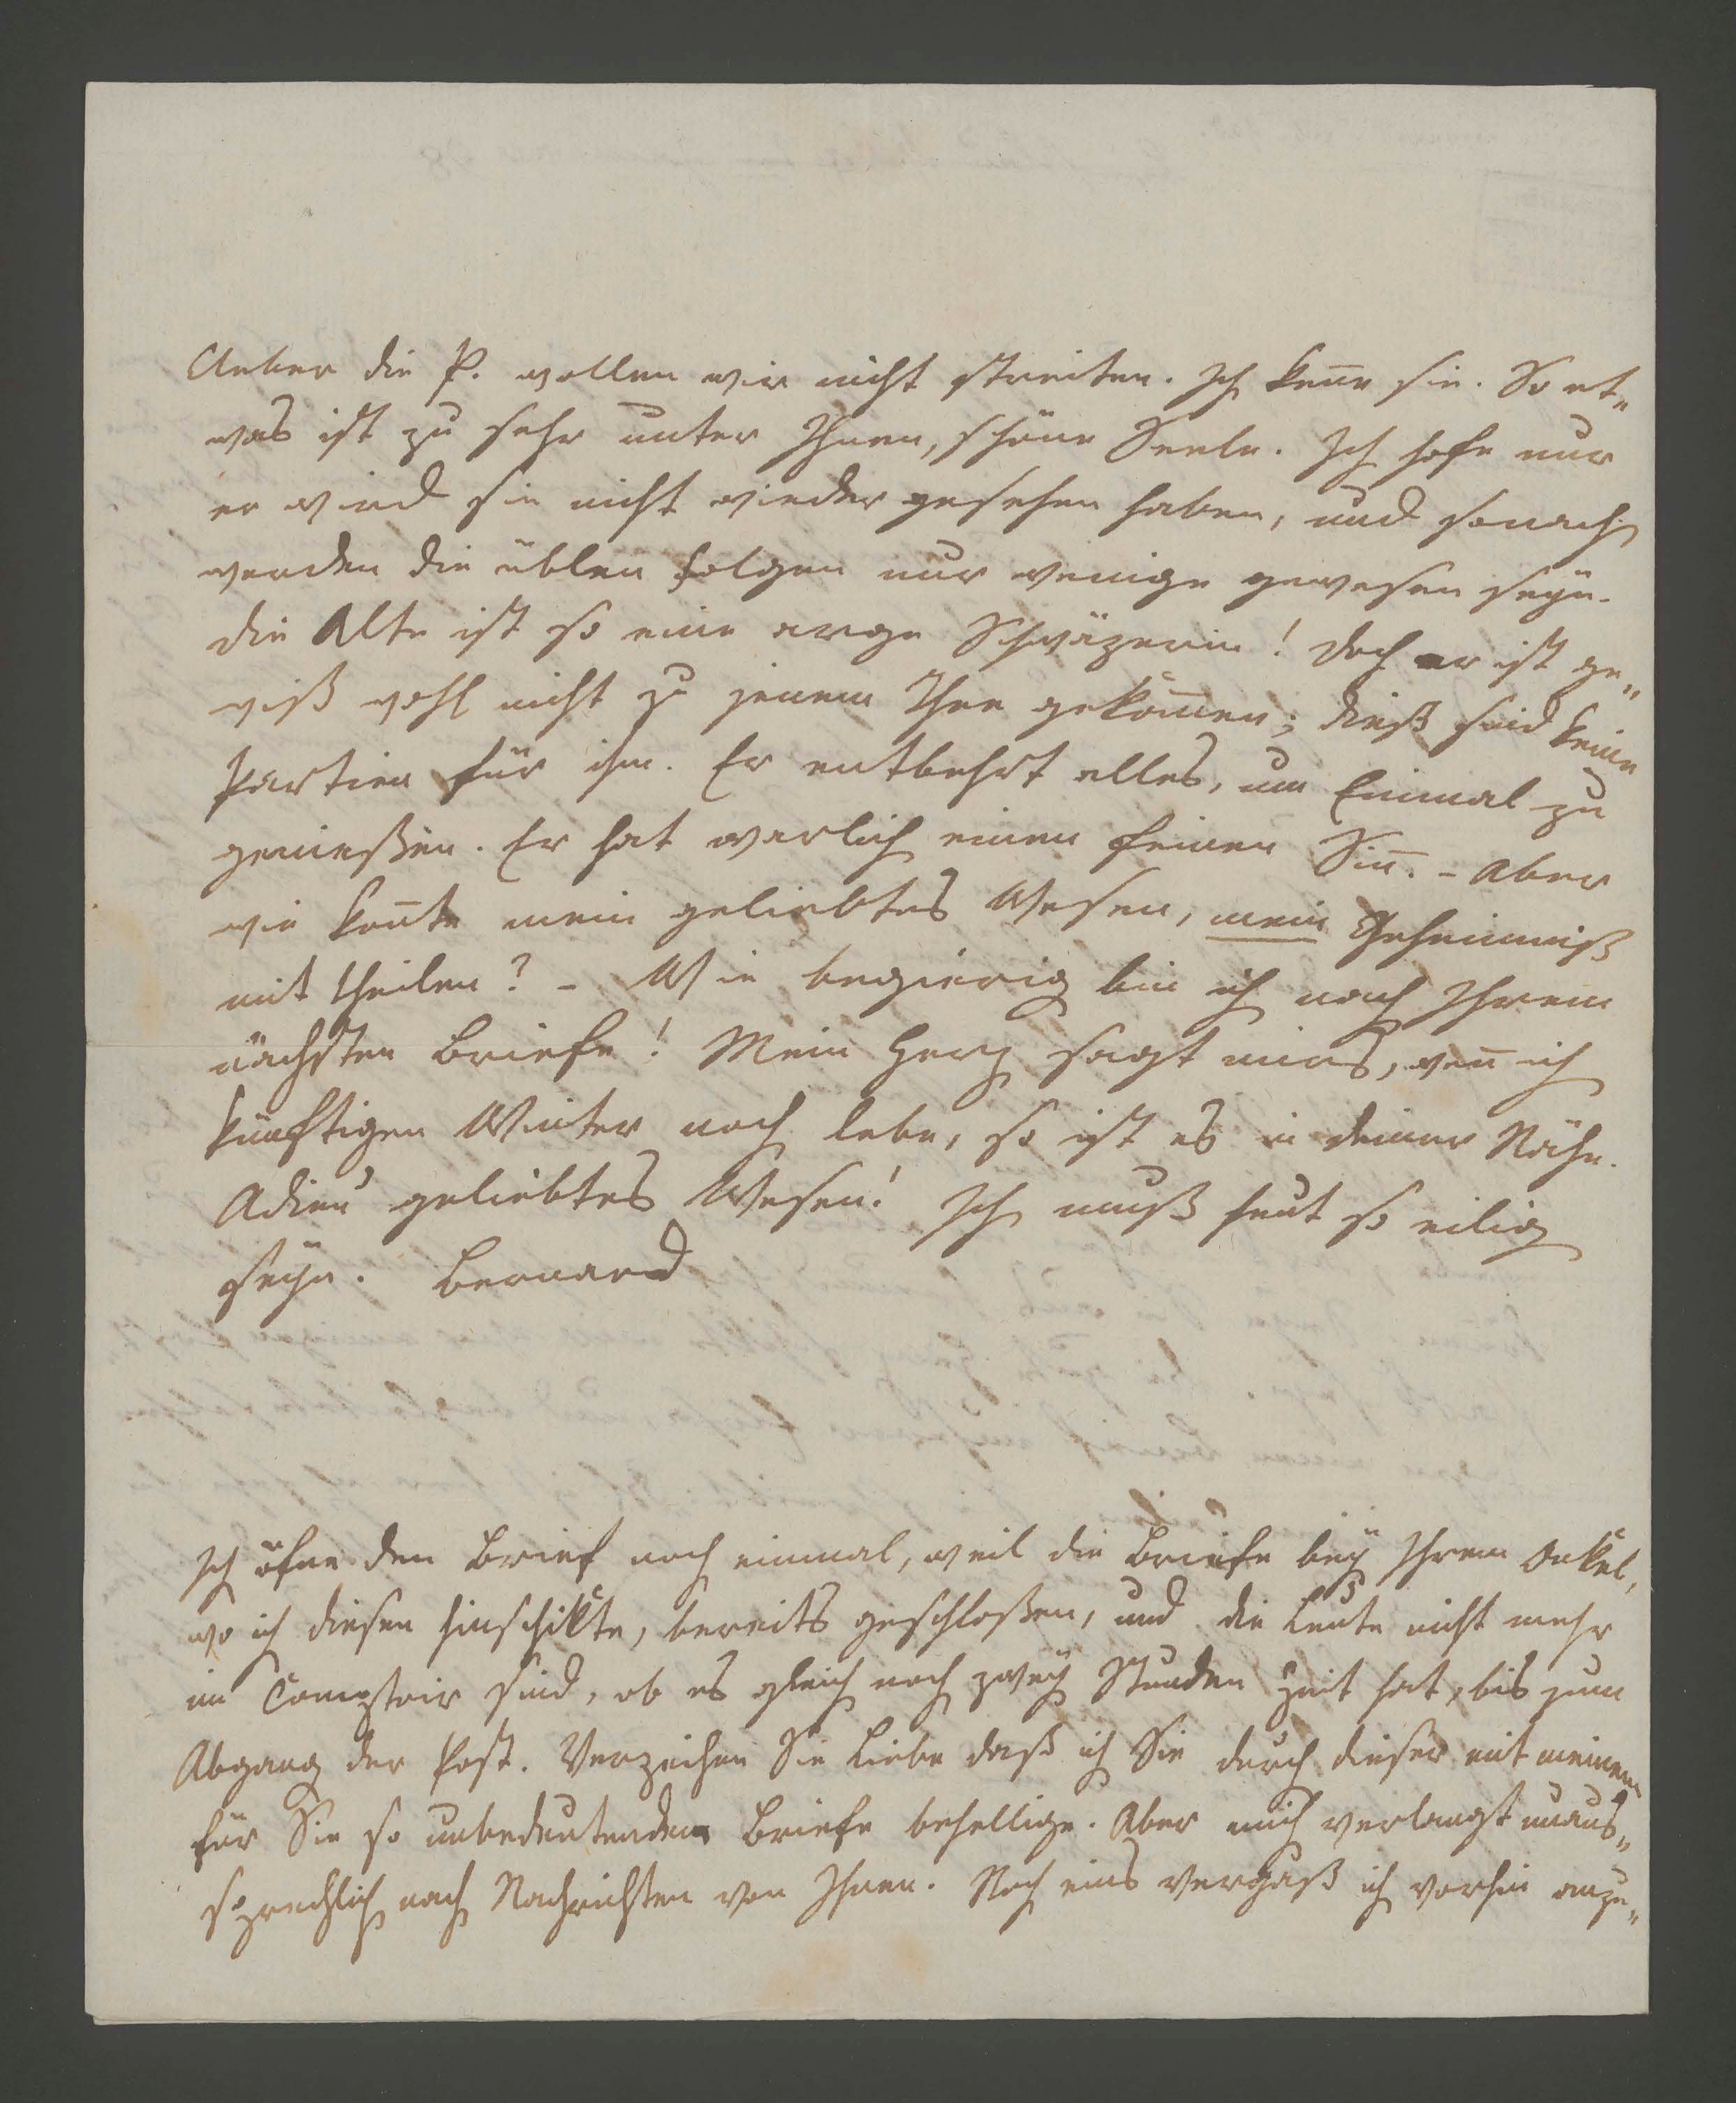 Ueber die P. wollen wir nicht streiten. Ich kenne sie. So et„
was ist zu sehr unter Ihnen, schöne Seele. Ich hofe nur
er wird sie nicht wieder gesehen haben, und sonach
werden die üblen Folgen nur wenige gewesen seyn.
die Alte ist so eine arge Schwäzerin! doch er ist ge„
wiß wohl nicht zu jenem Thee gekom̄en; dieß sind keine
Partien für ihn. Er entbehrt alles, um Einmal zu
genießen. Er hat warlich einen feinen Sin̄. – Aber
wie kon̄te mein geliebtes Wesen, mein Geheimniß
mit theilen? – Wie begierig bin ich nach Ihrem
nächsten Briefe! Mein Herz sagt mirs, wen̄ ich
künftigen Winter noch lebe, so ist es in deiner Nähe.
Adieu geliebtes Wesen! Ich muß heut so eilig
seyn. Bernard
Ich öfne den Brief noch einmal, weil die Briefe bey Ihrem Onkel,
wo ich diesen hinschikte, bereits geschloßen, und die Leute nicht mehr
im Comptoir sind, ob es gleich noch zwey Stunden Zeit hat, bis zum
Abgang der Post. Verzeihen Sie Liebe daß ich Sie durch dieser mit meinem
für Sie so unbedeutenden Briefe behellige. Aber mich verlangt unaus„
sprechlich nach Nachrichten von Ihnen. Noch eins vergaß ich vorhin anzu„